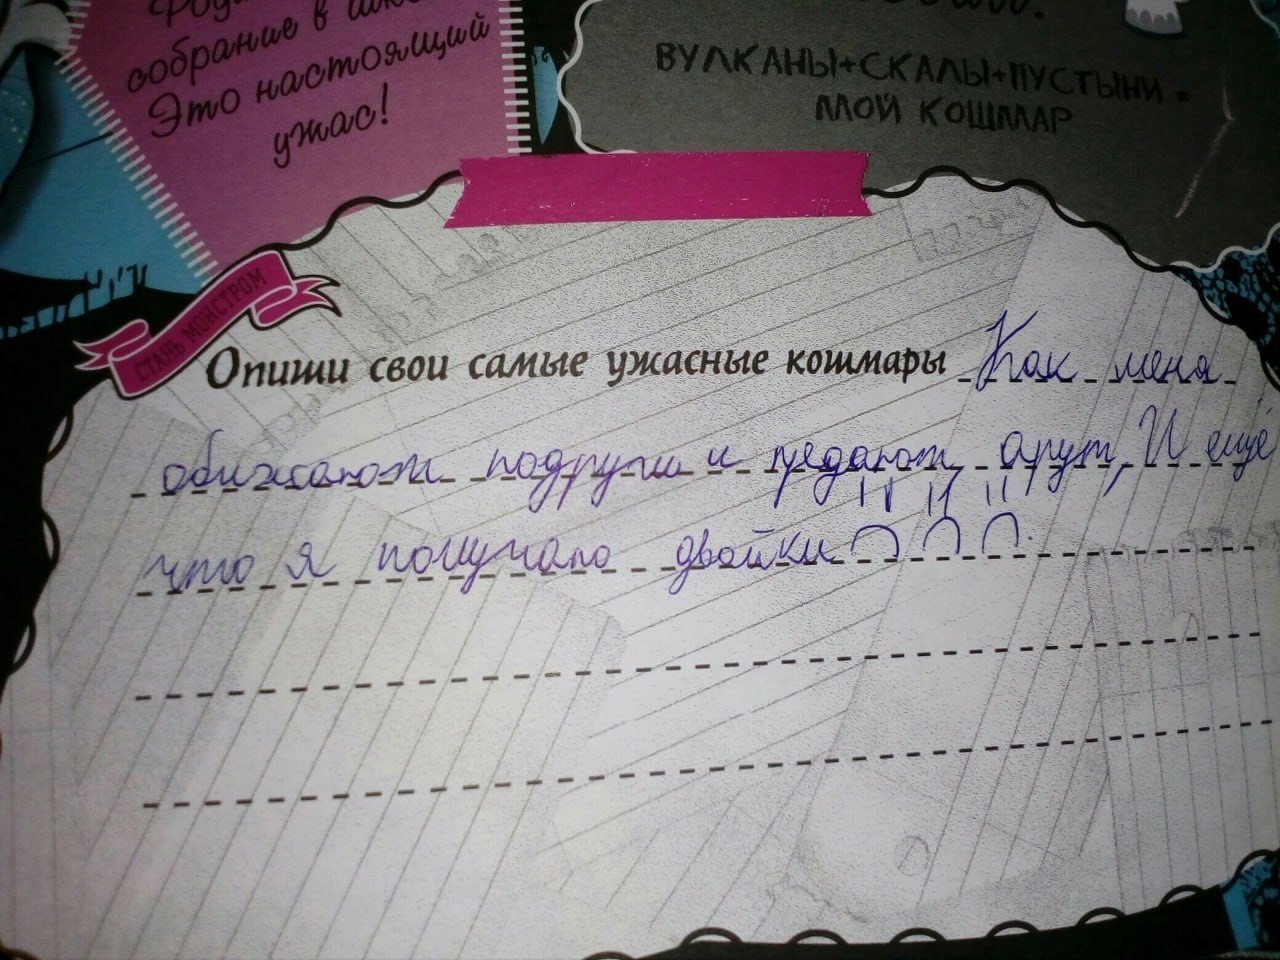 собрание в
Это настоящий
ужас!
ВУЛКАНЫ+СКАЛЫ+ПУСТЫНИ =
МОЙ КОШМАР
СТАНЬ МОНСТРОМ
Опиши свои самые ужасные кошмары Как меня
обижают подруги и предают, орут, И ещё
что я получаю двойки